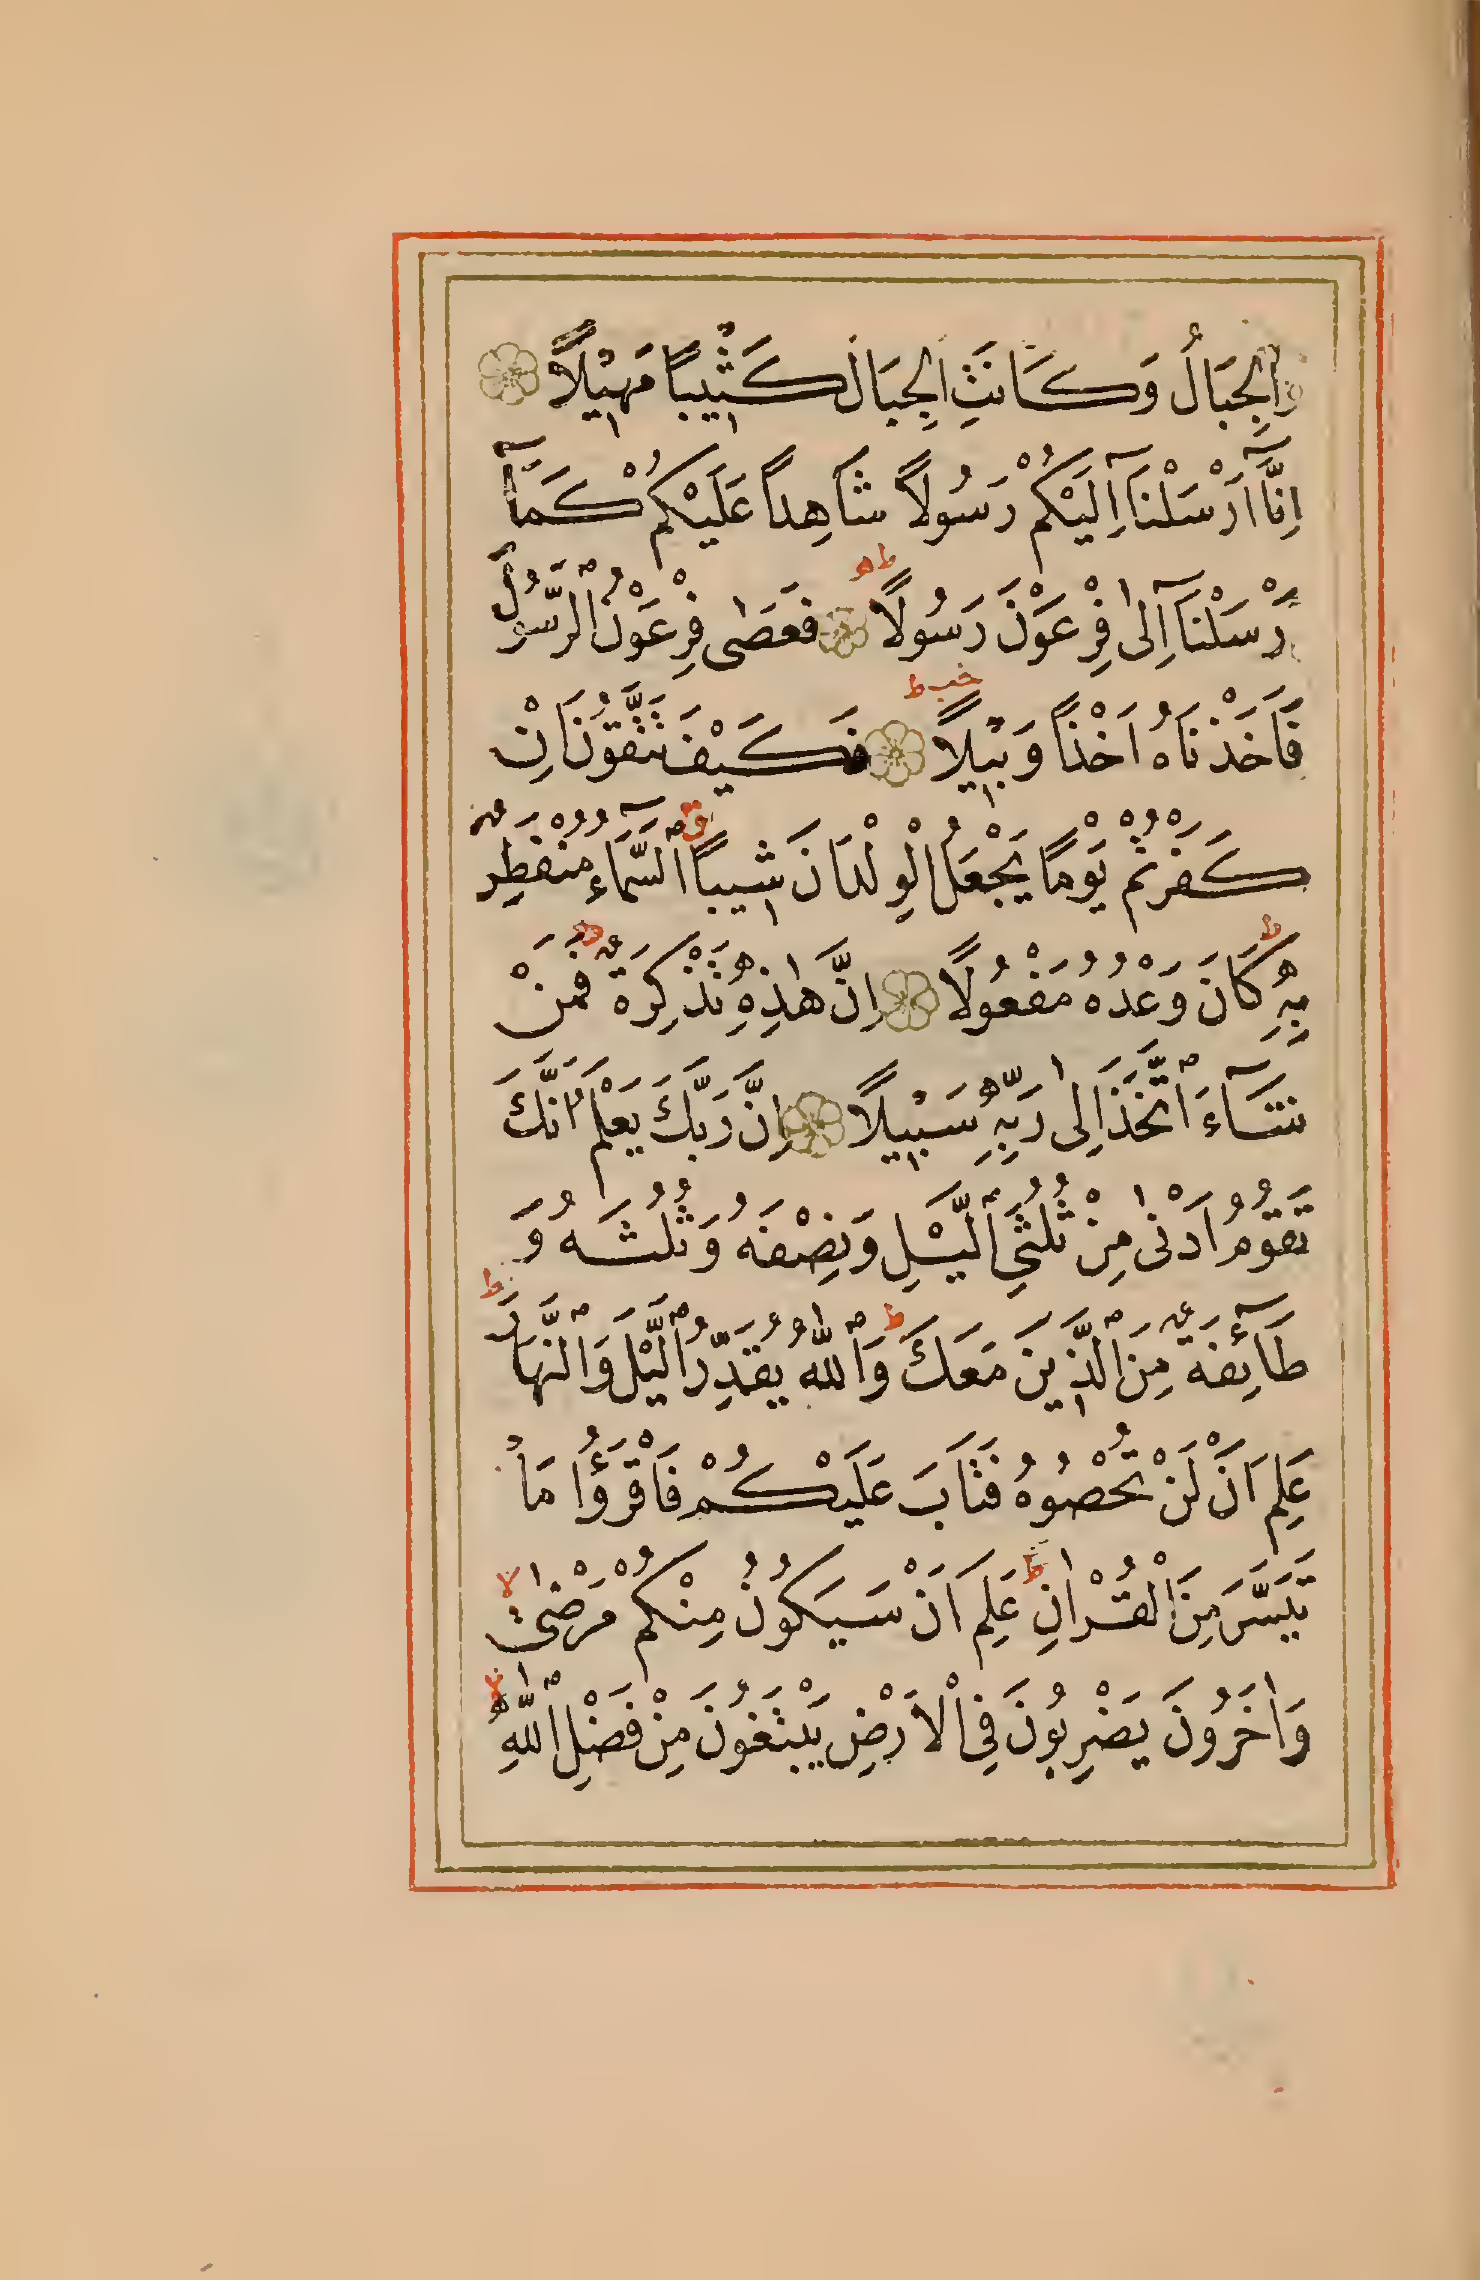 وَالْجِبَالُ وَكَانَتِ الْجِبَالُ كَثِيبًا مَهِيلًا
اِنَّآ اَرْسَلْنَآ اِلَيْكُمْ رَسُولًا شَاهِدًا عَلَيْكُمْ كَمَآ
اَرْسَلْنَآ اِلٰى فِرْعَوْنَ رَسُولًا ط فَعَصٰى فِرْعَوْنُ الرَّسُولَ
فَاَخَذْنَاهُ اَخْذًا وَبِيلًا خب ط فَكَيْفَ تَتَّقُونَ اِنْ
كَفَرْتُمْ يَوْمًا يَجْعَلُ الْوِلْدَانَ شِيبًا ق السَّمَآءُ مُنْفَطِرٌ
بِهِ ط كَانَ وَعْدُهُ مَفْعُولًا اِنَّ هٰذِهِ تَذْكِرَةٌ فَمَنْ
شَآءَ اتَّخَذَ اِلٰى رَبِّهِ سَبِيلًا اِنَّ رَبَّكَ يَعْلَمُ اَنَّكَ
تَقُومُ اَدْنٰى مِنْ ثُلُثَيِ الَّيْلِ وَنِصْفَهُ وَثُلُثَهُ وَ
طَآئِفَةٌ مِنَ الَّذِينَ مَعَكَ ط وَاللّٰهُ يُقَدِّرُ الَّيْلَ وَالنَّهَارَ ط
عَلِمَ اَنْ لَنْ تُحْصُوهُ فَتَابَ عَلَيْكُمْ فَاقْرَؤُا مَا
تَيَسَّرَ مِنَ الْقُرْاٰنِ ط عَلِمَ اَنْ سَيَكُونُ مِنْكُمْ مَرْضٰى لا
وَاٰخَرُونَ يَضْرِبُونَ فِى الْاَرْضِ يَبْتَغُونَ مِنْ فَضْلِ اللّٰهِ لا